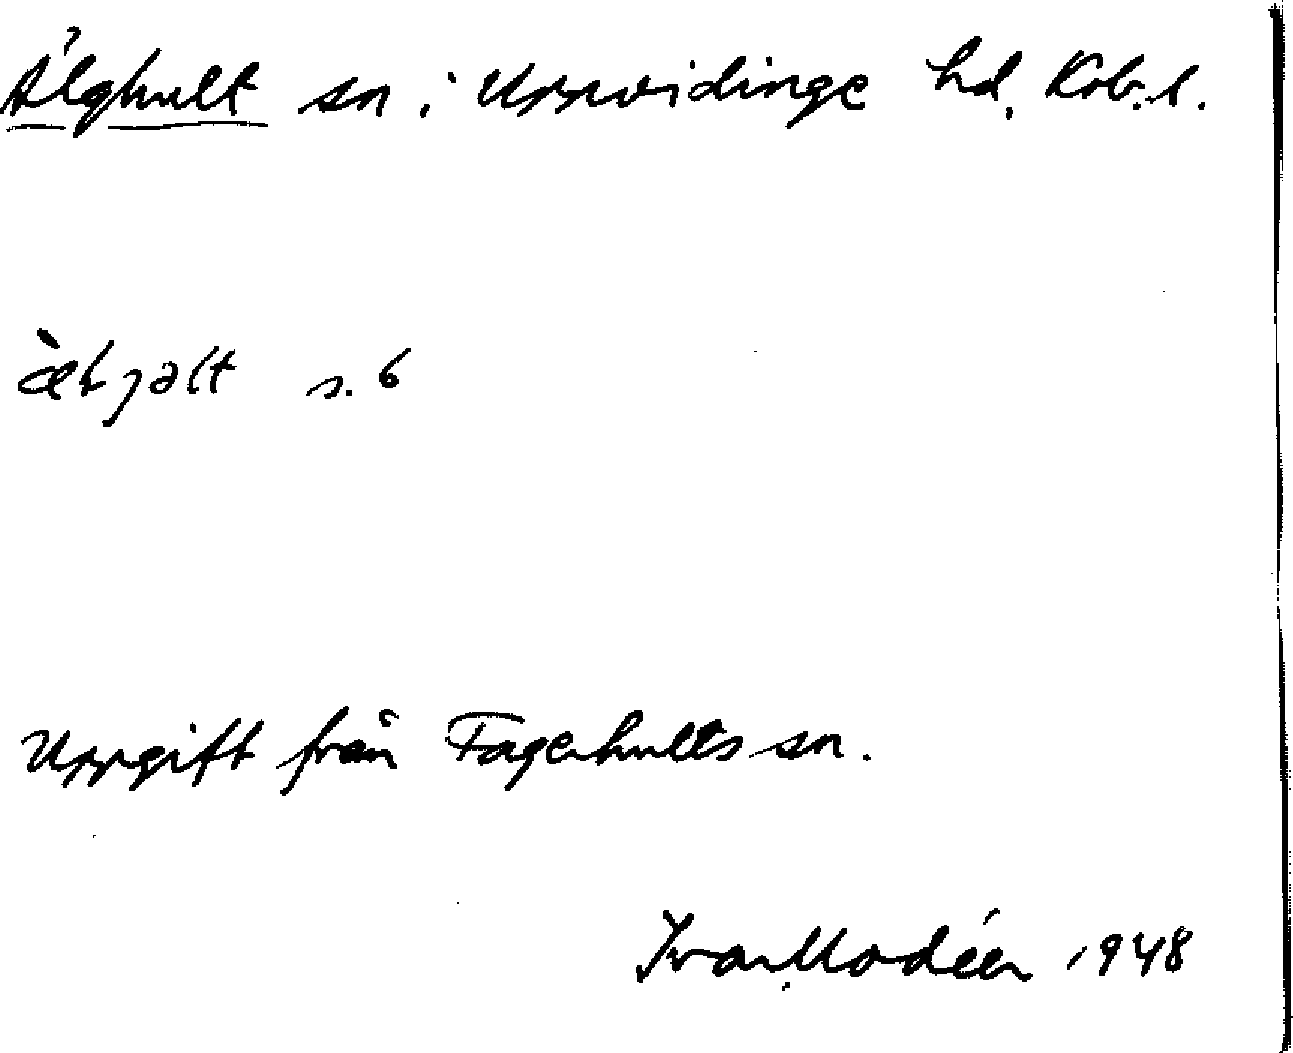 Älghult sn i Uppvidinge hd. Kbg. l.
s. 6
Uppgift från Fagerhults sn.
Ivar Modéer 1948